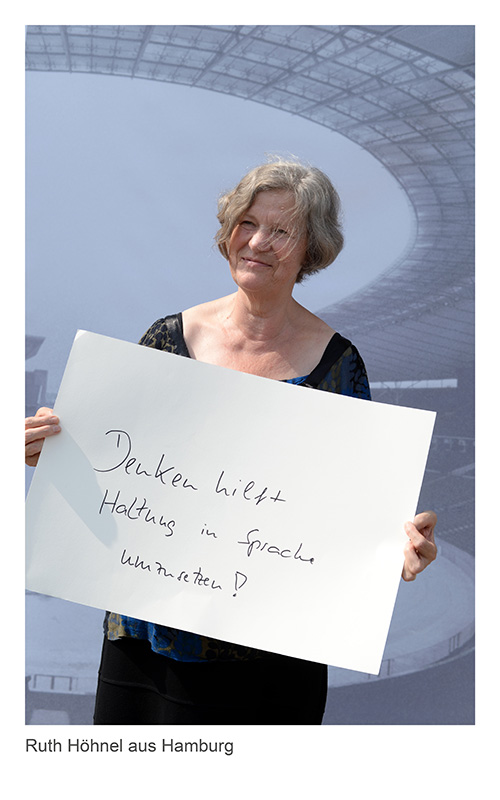 Denken hilft
Haltung in Sprache
umzusetzen!
Ruth Höhnel aus Hamburg